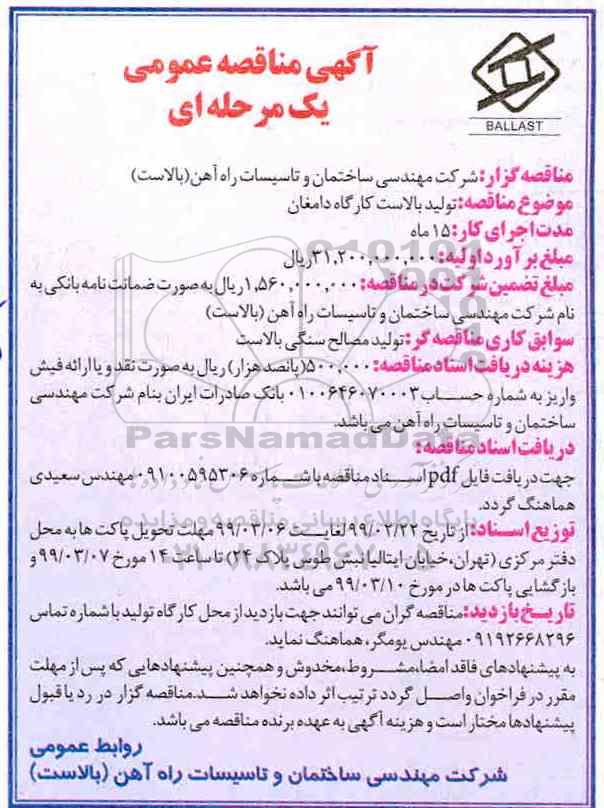 آگهی مناقصه عمومی
یک مرحله ای
BALLAST
مناقصه گزار: شرکت مهندسی ساختمان و تاسیسات راه آهن (بالاست)
موضوع مناقصه: تولید بالاست کارگاه دامغان
مدت اجرای کار: ۱۵ ماه
مبلغ برآورد اولیه: ۳۱,۲۰۰,۰۰۰,۰۰۰ ریال
مبلغ تضمین شرکت در مناقصه: ۱,۵۶۰,۰۰۰,۰۰۰ ریال به صورت ضمانت نامه بانکی به
نام شرکت مهندسی ساختمان و تاسیسات راه آهن (بالاست)
سوابق کاری مناقصه گر: تولید مصالح سنگی بالاست
هزینه دریافت اسناد مناقصه: ۵۰۰,۰۰۰ (پانصد هزار) ریال به صورت نقد و یا ارائه فیش
واریز به شماره حساب ۰۱۰۰۶۴۶۰۷۰۰۰۳ بانک صادرات ایران بنام شرکت مهندسی
ساختمان و تاسیسات راه آهن می باشد.
ParsNamadData
دریافت اسناد مناقصه:
جهت دریافت فایل pdf اسناد مناقصه با شماره ۰۹۱۰۰۵۹۵۳۰۶ مهندس سعیدی
هماهنگ گردد.
پایگاه اطلاع رسانی مناقصه و مزایده
توزیع اسناد: از تاریخ ۹۹/۰۲/۲۲ لغایت ۹۹/۰۳/۰۶ مهلت تحویل پاکت ها به محل
دفتر مرکزی (تهران، خیابان ایتالیا نبش طوس پلاک ۲۴) تا ساعت ۱۴ مورخ ۹۹/۰۳/۰۷ و
بازگشایی پاکت ها در مورخ ۹۹/۰۳/۱۰ می باشد.
تاریخ بازدید: مناقصه گران می توانند جهت بازدید از محل کارگاه تولید با شماره تماس
۰۹۱۹۲۶۶۸۲۹۶ مهندس یومگر، هماهنگ نماید.
به پیشنهادهای فاقد امضا، مشروط، مخدوش و همچنین پیشنهادهایی که پس از مهلت
مقرر در فراخوان واصل گردد ترتیب اثر داده نخواهد شد. مناقصه گزار در رد یا قبول
پیشنهادها مختار است و هزینه آگهی به عهده برنده مناقصه می باشد.
روابط عمومی
شرکت مهندسی ساختمان و تاسیسات راه آهن (بالاست)